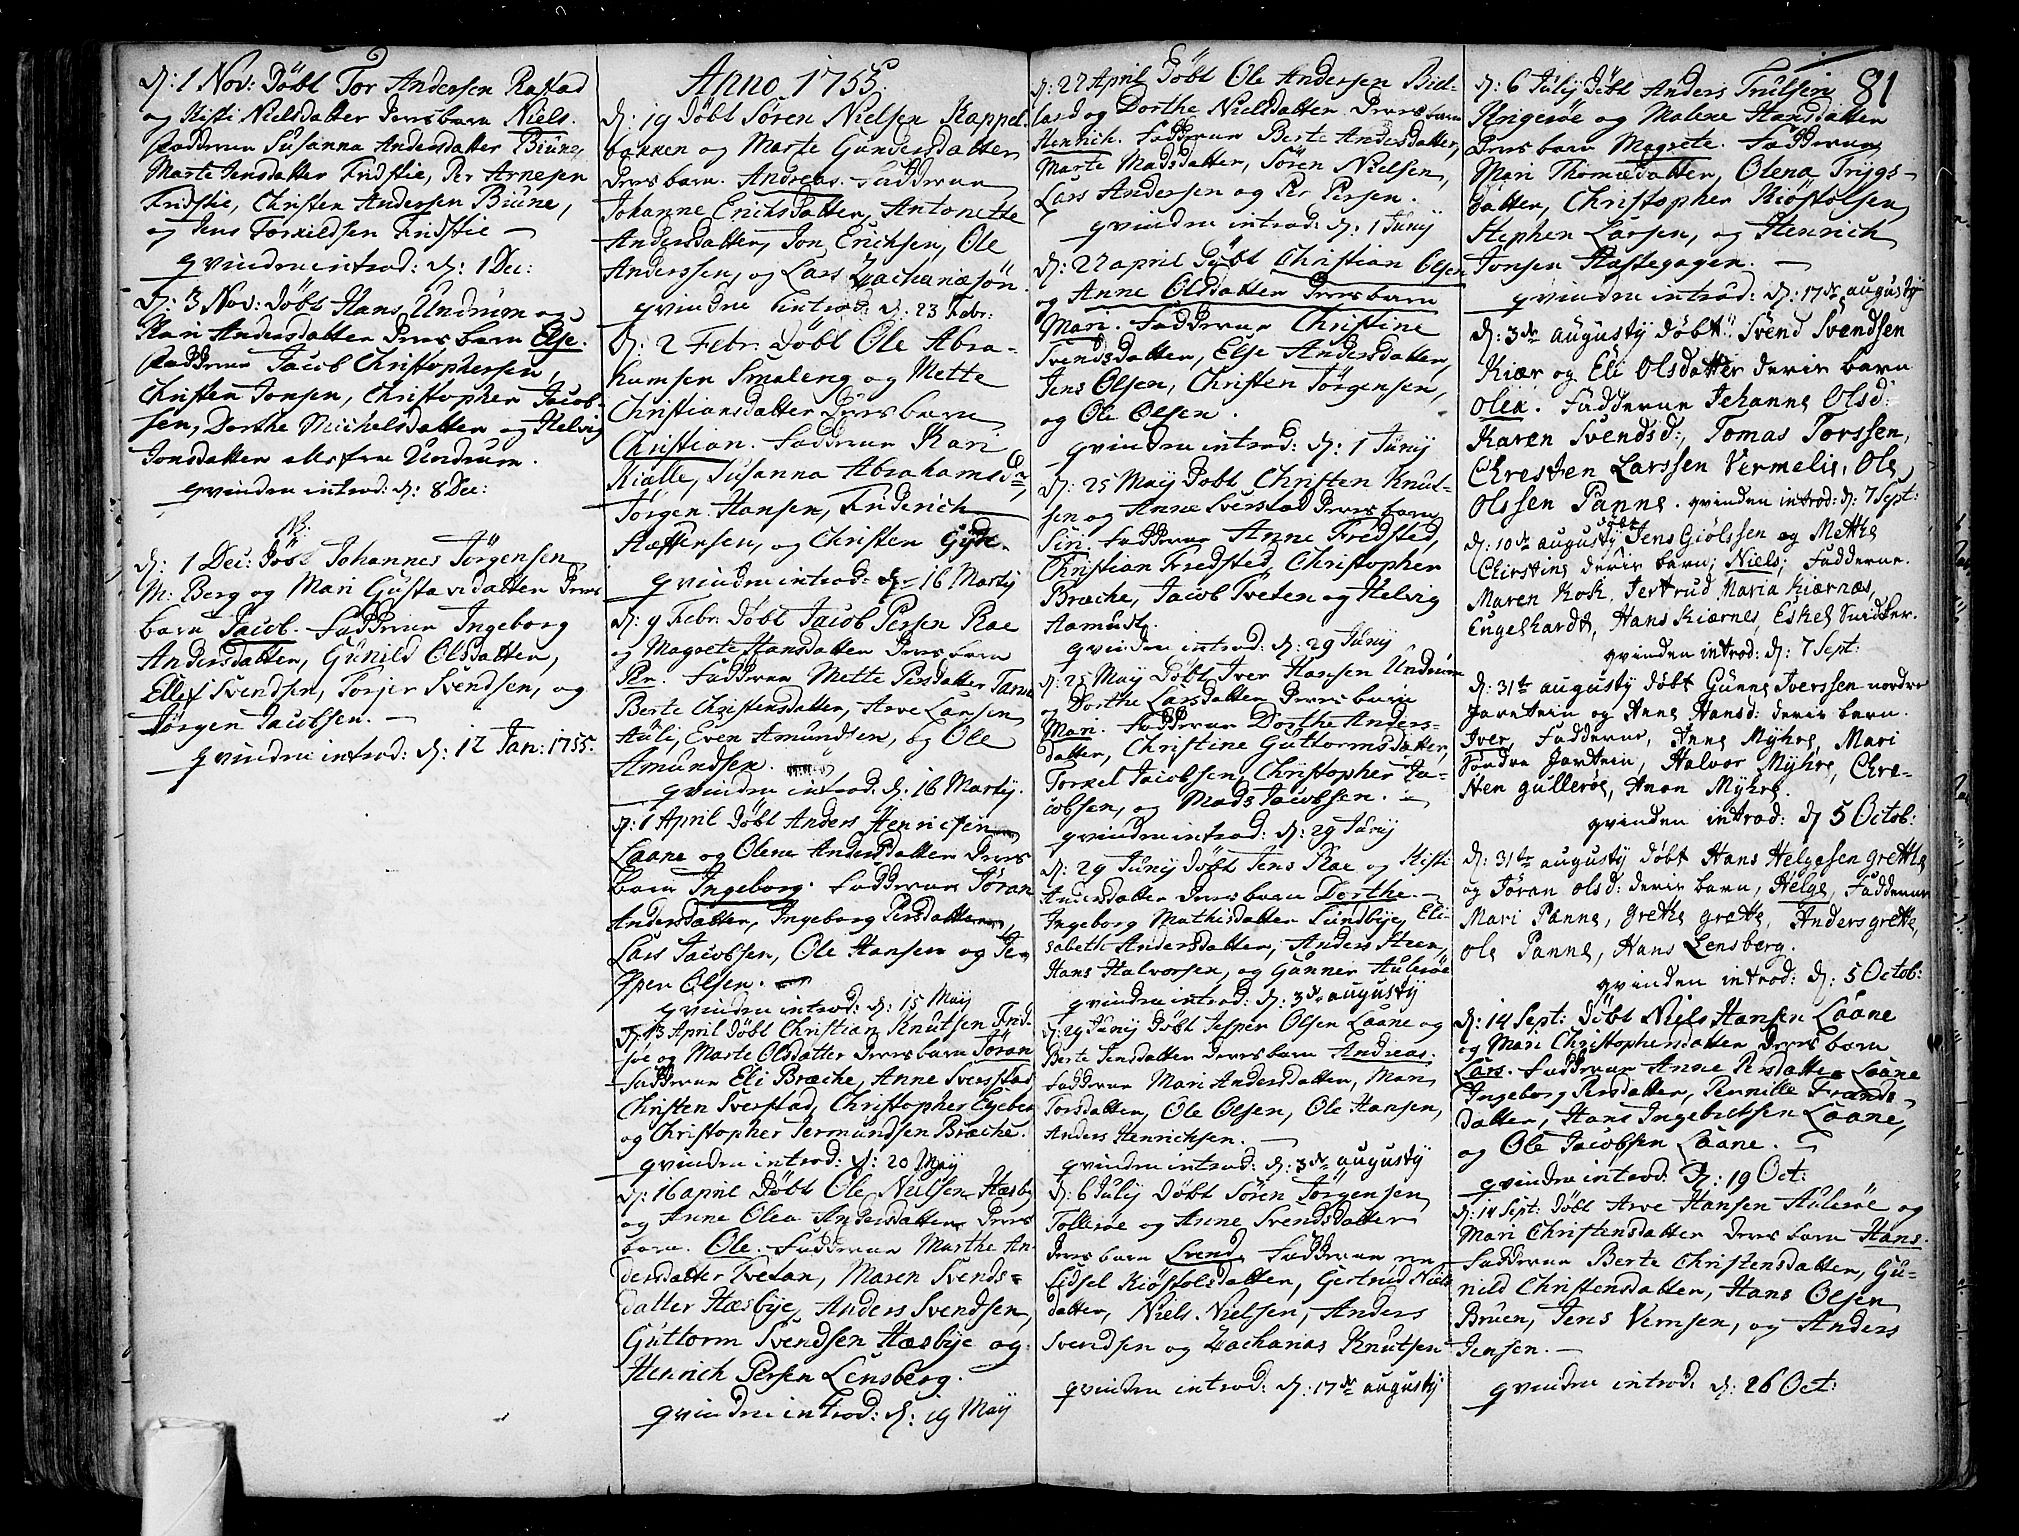 d: 1 Nov: døbt Tor Andersen Rastad
og Kisti Nielsdatter deres barn Niels.
fadderne Susanna Andersdatter Biüne,
Marte Jensdatter Fristie, Per Arnesen
Fristie, Christen Andersen Biüne,
og Jens Torkildsen Fristie
qvinden introd: d: 1 Dec:
d: 3 Nov: døbt Hans Undrum og
Kari Andersdatter deres barn Else.
fadderne Jacob Christophersen,
Christen Jonsen, Christopher Jacob-
sen, Dorthe Michelsdatter og Helvig
Jonsdatter alle fra Undrum.
qvinden introd: d: 8 Dec:
NB:
d: 1 Dec: døbt Johannes Jørgensen
M: Berg og Mari Gustavsdatter deres
barn Jacob. Fadderne Ingeborg
Andersdatter, Günild Olsdatter,
Ellef Svendsen, Torjer Svendsen, og
Jørgen Jacobsen.
qvinden introd: d: 12 Jan: 1755.
Anno 1755.
d: 19 døbt Søren Nielsen Kappel
bakken og Marte Gundersdatter
deres barn. Andreas. Fadderne
Johanne Erichsdatter, Antonette
Andersdatter, Jon Erichsen, Ole
Anderssen, og Lars Zachariæsøn.
qvinden introd: d: 23 Febr:
d: 2 Febr: døbt Ole Abra-
hamsen Smaleng og Mette
Christiansdatter deres barn
Christian. Fadderne Kari
Kialle, Susanna Abrahamsdr,
Jørgen Hansen, Friderich
Steffensen, og Christen
qvinden introd: d: 16 Martij
d: 9 Febr: døbt Jacob Persen Rae
og Magrete Hansdatter deres barn
Per. Fadderne Mette Persdatter
Berte Christensdatter, Arve Larsen
Auli, Even Amundsen, og Ole
Amundsen.
qvinden introd: d: 16 Martij.
d: 1 April døbt Anders Henricsen
Laane og Olene Andersdatter deres
barn Ingeborg. Fadderne Jøran
Andersdatter, Ingeborg Persdatter,
Lars Jacobsen, Ole Hansen og Je-
sper Olsen.
qvinden introd: d: 15 Maij
d: 13 April døbt Christian Knutsen
og Marte Olsdatter deres barn Jøran
Fadderne Eli Bræche, Anne Sverstad
Christen Sverstad, Christopher
og Christopher Germundsen Bræche.
qvinden introd: d: 20 Maij
d: 16 april døbt Ole Nielsen Hæsby
og Anne Olea Andersdatter deres
barn. Ole. Fadderne Marthe An-
dersdatter Tvetan, Maren Svends-
datter Hæsbye, Anders Svendsen,
Güttorm Svendsen Hæsbye og
Henrich Persen Lensberg.
qvinden introd: d: 19 Maij
d: 27 April døbt Ole Andersen Biel-
land og Dorthe Nielsdatter deres barn
Henrich. Fadderne Berte Andersdatter,
Marte Madsdatter, Søren Nielsen,
Lars Andersen og Per Persen.
qvinden introd: d: 1 Junij
d: 27 april døbt Christian Olsen
og Anne Olsdatter deres barn
Mari. Fadderne Christine
Svendsdatter, Else Andersdatter,
Jens Olsen, Christen Jørgensen,
og Ole Olsen.
qvinden introd: d: 1 Junij
d: 25 Maij døbt Christen Knut-
sen og Anne Sverstad deres barn
Siri. Fadderne Anne Fredsted,
Christian Fredsted, Christopher
Bræche, Jacob Tveten og Helvig
Aamunds.
qvinden introd: d: 29 Junij
d: 25 Maij døbt Iver Hansen Undrüm
og Dorthe Larsdatter deres barn
Mari. Fadderne Dorthe Anders-
datter, Christine Güttormsdatter,
Torkel Jacobsen, Christopher Ja-
cobsen, og Mads Jacobsen.
qvinden introd: d: 29 Junij
d: 29 Junij døbt Jens Rae og Kisti
Andersdatter deres barn Dorthe
Ingeborg Mathisdatter Sundbye, Eli-
sabeth Andersdatter, Anders Steen,
Hans Halvorsen, og Günner Aulerøe
qvinden introd: d: 3de augusty
d: 29 Junij døbt Jesper Olsen Laane og
Berte Jensdatter deres barn Andreas.
Fadderne Mari Andersdatter, Mari
Torsdatter, Ole Olsen, Ole Hansen,
Anders Henrichsen.
qvinden introd: d: 3de augusty
d: 6 Julij døbt Søren Jørgensen
Tollerøe og Anne Svendsdatter
deres barn Svend. Fadderne ere
Sidsel Kiøstolsdatter, Gertrud Niels
datter, Niels Nielsen, Anders
Svendsen og Zacharias Knutsen
qvinden introd: d: 17de augusty
81
d: 6 Julij døbt Anders Trulsen
Ringsøe og Malene Hansdatter
deres barn Magrete. Fadderne
Mari Thomædatter, Olena Trÿgs-
datter, Christopher Kiøstolsen
Stephen Larsen, og Henrich
Jonsen Hastegagen.
qvinden introd: d: 17de augustij
d: 3de augusty døbt Svend Svendsen
Kiær og Eli Olsdatter deris barn
Olea. Fadderne Johanne Olsd:
Karen Svendsd:, Tomas Torssen,
Chresten Larssen Vermelie, Ole
Olssen Panne. qvinden introd: d: 7 Sept:
d: 10de augusty døbt Jens Giølssen og Mette
Chirstine deris barn, Niels, Fadderne.
Maren Kok, Jertrud Maria Kiærnæs,
Engelhardt, Hans Kiærnes, Eskel Snidker.
qvinden introd: d: 7 Sept:
d: 31te augusty døbt Günne Iverssen nordre
Jartein og Anne Hansd: deris barn.
Iver, Fadderne, Anne Myhre, Mari
Søndre Jartein, Halvor Mÿhre, Chre-
sten gullerøe, Anon Mÿhre.
qvinden introd: d 5 Octob:
d: 31te augusty døbt Hans Helgesen Grette
og Jøran Olsd: deris barn, Helge, Fadderne
Mari Panne, Grethe grette, Anders grette,
Ole Panne, Hans Lensberg.
qvinden introd: d: 5 Octob:
d: 14 Sept: døbt Niels Hansen Laane
og Mari Christophersdatter deres barn
Lars. Fadderne Anne Persdatter Laane
Ingeborg Persdatter, Pernille Frands-
datter, Hans Ingebretsen Laane,
og Ole Jacobsen Laane.
qvinden introd: d: 19 Oct:
d: 14 Sept: døbt Arve Hansen Aulerøe og
Mari Christensdatter deres barn Hans.
Fadderne Berte Christensdatter, Gu-
nild Christensdatter, Hans Olsen
Brüen, Jens Vernsen, og Anders
Jensen.
qvinden introd: d: 26 Oct: